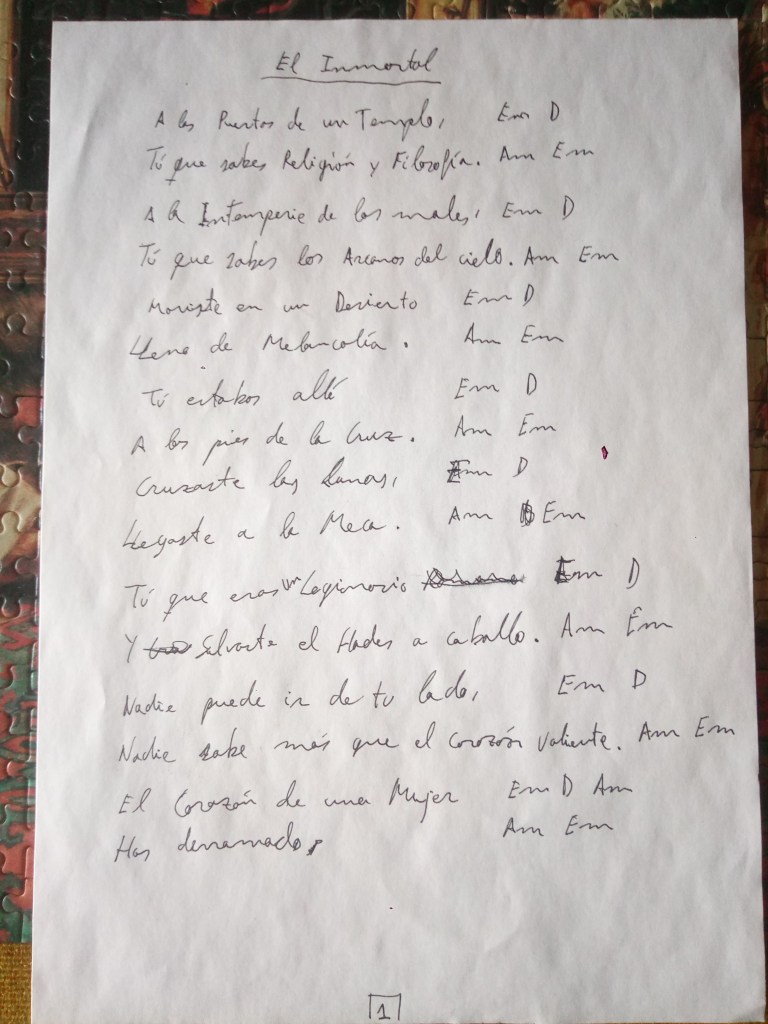 El Inmortal
A las Puertas de un Templo, Em D
Tú que sabes Religión y Filosofía. Am Em
A la Intemperie de los males, Em D
Tú que sabes los Arcanos del cielo. Am Em
Moriste en un Desierto Em D
Llena de Melancolía. Am Em
Tú estabas allí Em D
A los pies de la Cruz. Am Em
Cruzaste las Dunas, Em D
Llegaste a la Meca. Am Em
Tú que eras un Legionario Em D
Y el Hades a caballo. Am Em
Nadie puede ir de tu lado, Em D
Nadie sabe más que el corazón valiente. Am Em
El Corazón de una Mujer Em D Am
Has derramado, Am Em
1